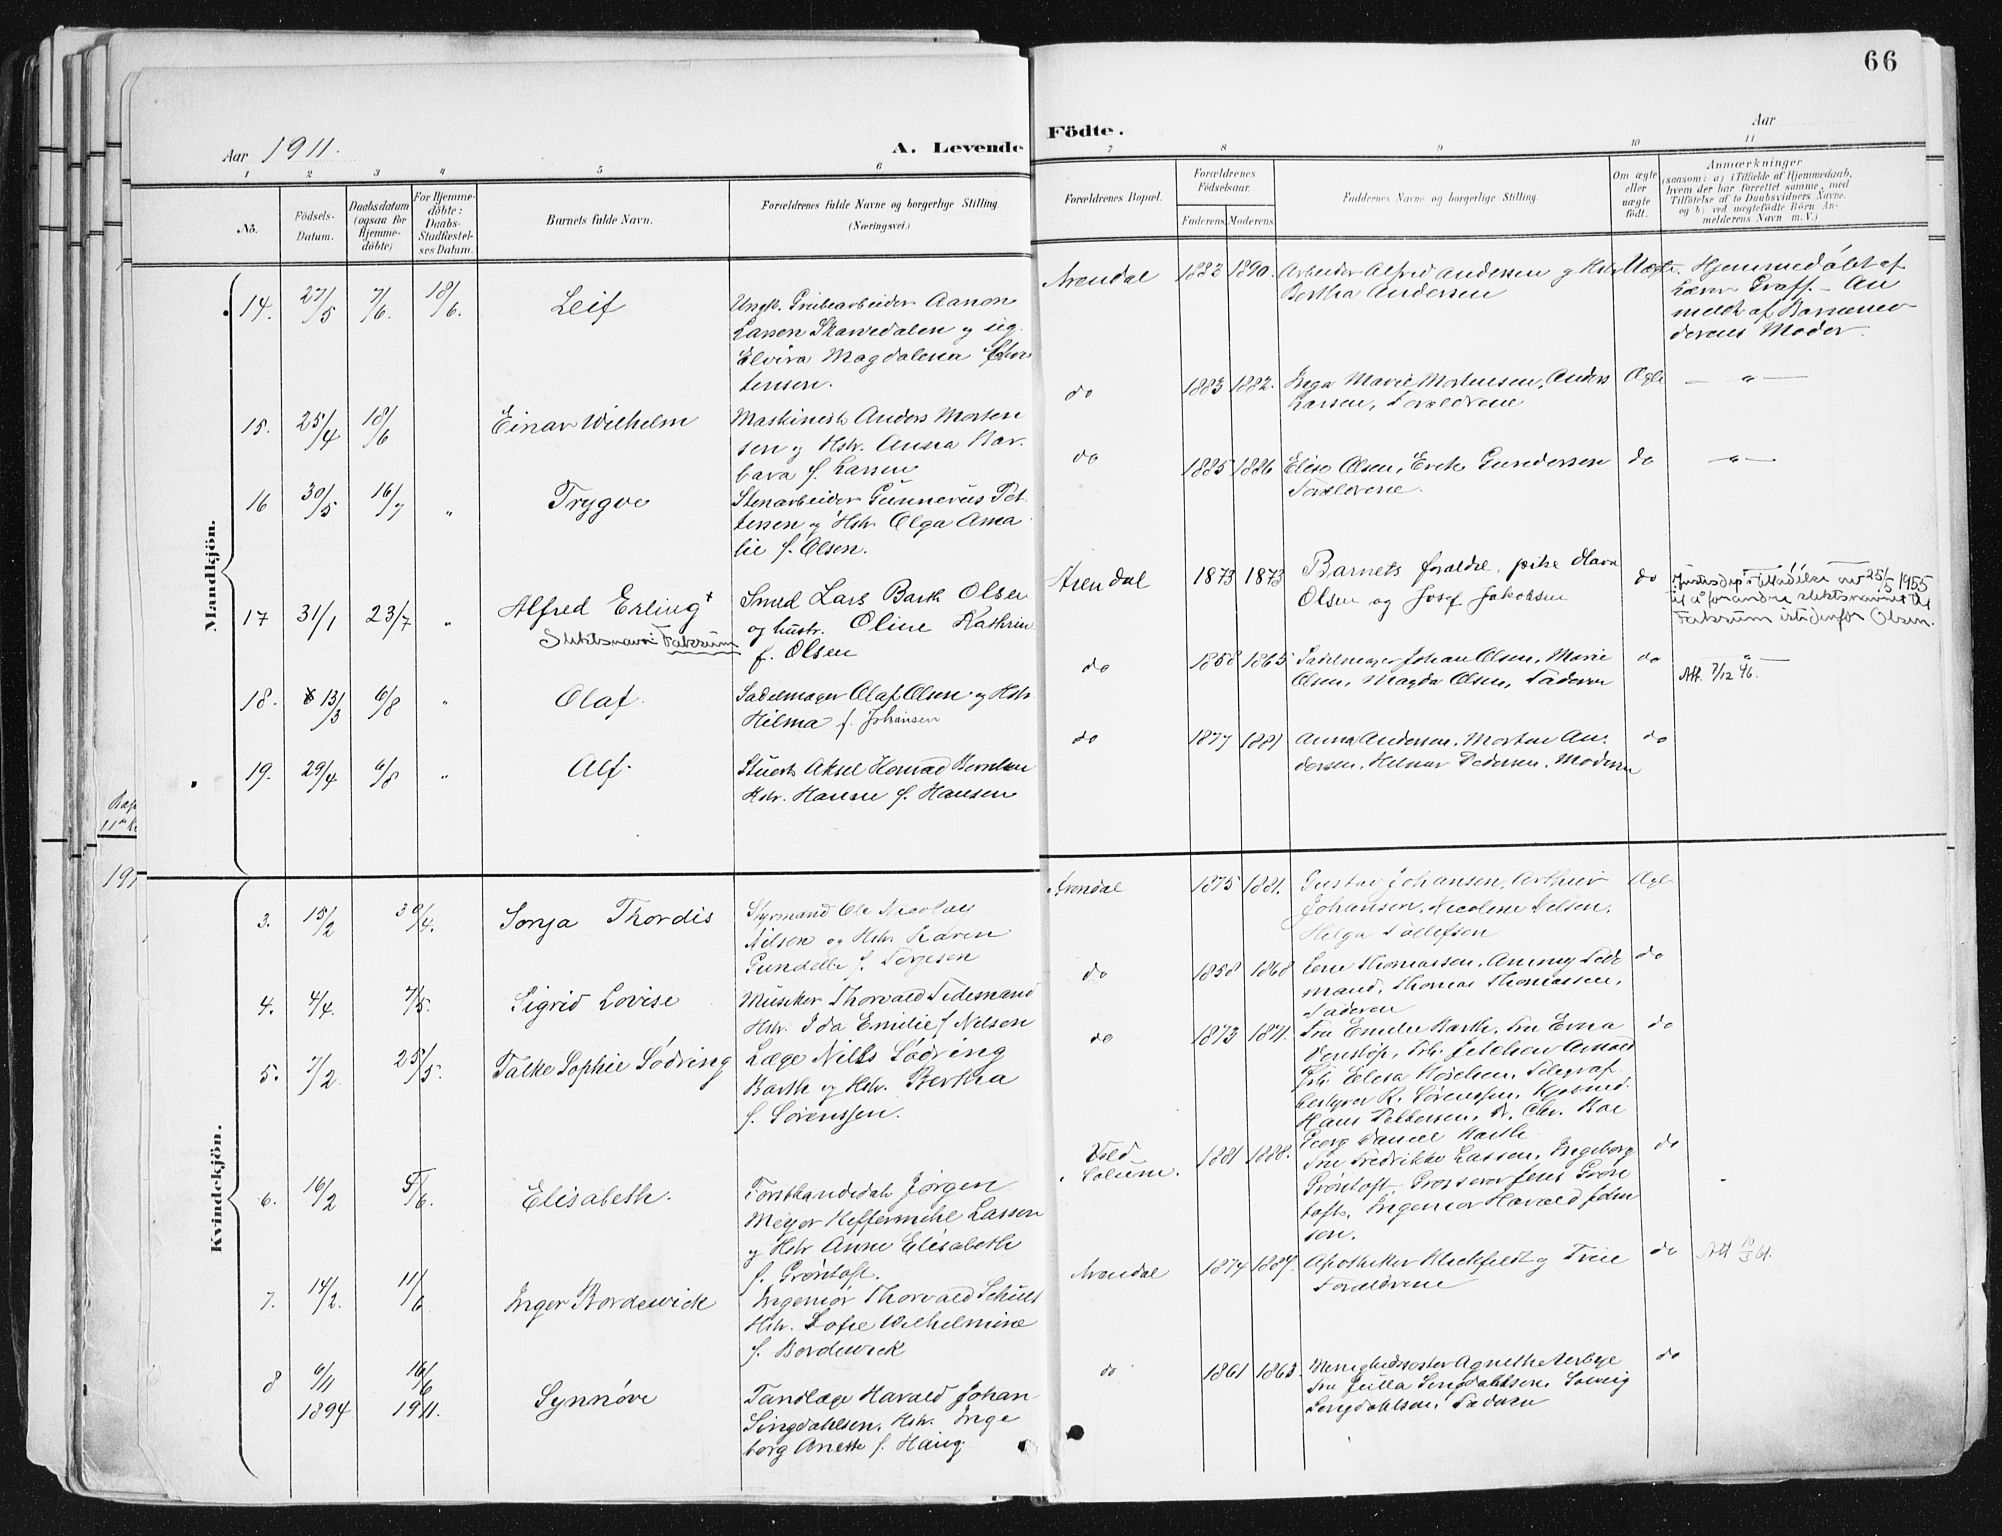 66
Aar 1911.
A. Levende
Födte.
Aar
1 2 3 4 5 6
7 8 9 10 11
No.
Födsels-
Datum.
Daabsdatum
(ogsaa for
Hjemme-
döbte)
For Hjemme-
döbte:
Daabs-
Stadfæstel-
ses Datum.
Barnets fulde Navn.
Forældrenes fulde Navne og borgerlige Stilling
(Næringsvei.)
Forældrenes Bopæl.
Forældrenes
Födselsaar.
Faderens. Moderens.
Faddernes Navne og borgerlige Stilling.
Om ægte
eller
uægte
født.
Anmærkninger
(saasom: a) i Tilfælde af Hjemmedaab,
hvem der har forrettet samme, med
Tilföielse af to Daabsvidners Navne.
og b) ved uægtefödte Börn An-
melderens Navn m. V.)
Mandkjön.
14. 27/5 7/6. 18/6. Leif
Ungk. Grubearbeider Aanon
Larsen Skarvedalen og pig.
Elvira Magdalena
tensen.
Arendal 1882 1890. Arbeider Alfred Andersen og Hstr
Bertha Andersen
Uægte. Hjemmedøbt af
Lærer Graff. – An
meldt af Barnemo
derens Moder.
15. 25/4 18/6 Einar Wilhelm
Maskinist Anders Morten
sen og Hstr. Anna Bar-
bara f. Larsen
do 1883 1882. Inga Marie Mortensen, Anders
Larsen, Forældrene
Ægte — " —
16 30/5 16/7 " Trygve
Stenarbeider Gunnerus Pet
tersen og Hstr Olga Ama
lie f. Olsen.
do 1885 1886 Elise Olsen, Erik Gundersen
Forældrene.
do — " —
17 31/1 23/7 " Alfred Erling +
Slektsnavn: Faksum
Smed Lars Bark Olsen
og hustr. Oline Kathrin
f. Olsen
Arendal 1873 1873 Barnets foraldre, pike Havn
Olsen og Josef Jakobsen
do Justisdep's tillatelse av 25/5 1955
til å forandre slektsnavnet til
Faksum istedenfor Olsen.
18. 13/3 6/8 " Olaf
Sadelmager Olaf Olsen og Hstr
Hilma f. Johansen
do 1858 1865 Sadelmager Johan Olsen, Marie
Olsen, Magda Olsen, Faderen
do — " —
Att. 7/12 46.
19. 29/4 6/8 " Alf.
Stuert Aksel Konrad Berntsen
Hstr. Hanne f. Hansen
do 1877 1881 Anna Andersen, Morten An-
dersen, Helmar Pedersen, Moderen
do
Kvindekjön.
3. 15/2 30/4. Sonja Thordis
Styrmand Ole Nicolay
Nilsen og Hstr Karen
Gundelle f. Terjesen
Arendal 1875 1881. Gustav Johansen, Arthur
Johansen, Nicoline Nilsen,
Helga Tollefsen
Ægte
4. 4/4. 7/5. Sigrid Lovise
Musiker Thorvald Tidemand
Hstr. Ida Emilie f Nelson
do 1858 1868 Lene Thomassen, Ammy Tide
mand, Thomas Thomassen,
Faderen
do
5. 7/2 25/5. Talke Sophie Södring
Læge Nills Södring
Barth og Hstr. Bertha
f. Sörenssen.
do 1873 1871. Fru Emilie Barth, Fru Erna
Hans Pettersen, Dr. Chr. Boe
Georg Daniel Barth
do
6. 16/2 5/6. Elisabeth.
Forstkandidat Jörgen
Meyer Heffermehl Lassen
og Hstr Anne Elisabeth
f. Gröntoft.
Solum. 1881 1888. Fru Fredrikke Lassen, Ingeborg
Gröntoft, Grosserer Jens Grön
toft, Ingeniør Harald John
sen.
do
7. 14/2. 11/6 Inger Bordewick
Ingeniør Thorvald Schultz
Hstr. Sofie Wilhelmine
f. Bordewick
Arendal 1874 1887. Apotheker Kleckfeldt og Frue
Forældrene
do Att 61.
8 6/11 1894 16/6 1911. Synnöve
Tandlæge Harald Johan
Singdahlsen, Hstr. Inge
borg Anette f. Haug
do 1861 1863. Menighedssøster Agnethe Aerbye
Fru Julla Singdahlsen, Solveig
Singdahlsen, Faderen
do